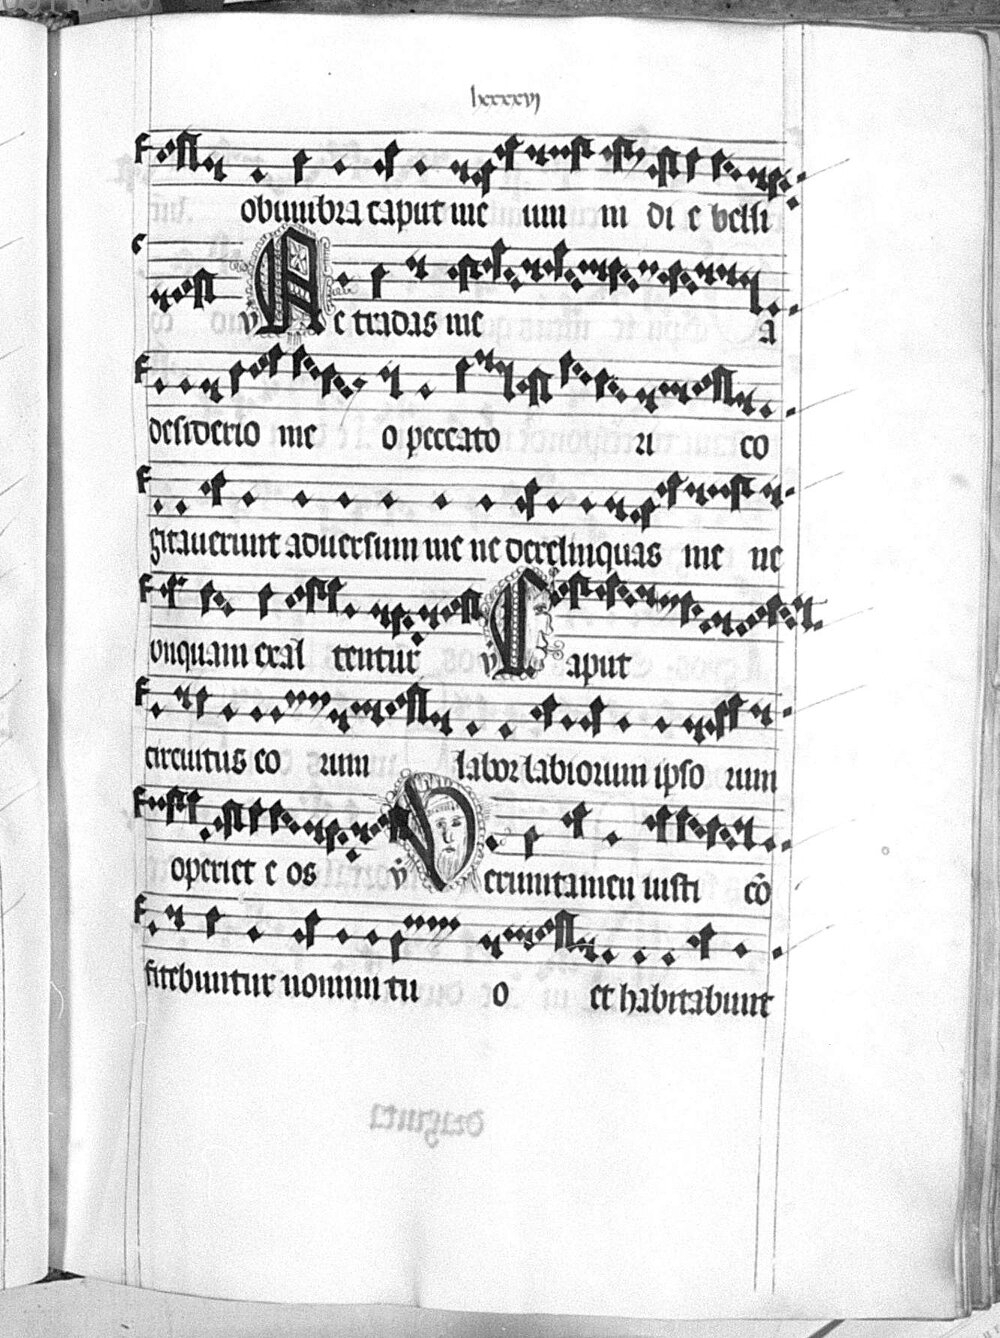 lxxxxvj
obumbra caput me um in di e belli
℣ Ne tradas me a
desiderio me o peccato ri co
gitauerunt aduersum me ne derelinquas me ne
unquam exal tentur ℣ Caput
circuitus eo rum labor labiorum ipso rum
operiet e os ℣ Veruntamen iusti cō
fitebuntur nomini tu o et habitabunt